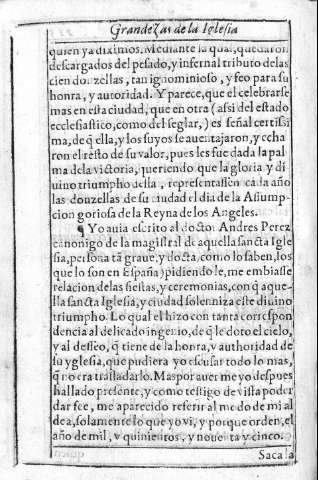 Grandezas de la Iglesia
quien ya diximos. Mediante la qual, quedaron
descargados del pesado, y infernal tributo de las
cien donzellas, tan ignominioso, y feo para su
honra, y autoridad. Y parece, que el celebrarse
mas en esta ciudad, que en otra (assi del estado
ecclesiastico, como del seglar,) es señal certissi
ma, de q̃ ella, y los suyos se auentajaron, y echa
ron el resto de su valor, pues les fue dada la pal
ma de la victoria, queriendo que la gloria y di
uino triumpho della, representassen cada año
las donzellas de su ciudad el dia de la Assump
cion goriosa de la Reyna de los Angeles.
¶ Yo auia escrito al doctor Andres Perez
canonigo de la magistral de aquella sancta Igle
sia, persona tã graue, y docta, como lo saben, los
que lo son en España) pidiendole, me embiasse
relacion de las fiestas, y ceremonias, con q̃ aque-
lla sancta Iglesia, y ciudad solenniza este diuino
triumpho. Lo qual el hizo con tanta correspon
dencia al delicado ingenio, de q̃ le doto el cielo,
y al desseo, q̃ tiene de la honra, y authoridad de
su yglesia, que pudiera yo escusar todo lo mas,
q̃ no era trasladarlo. Mas por auerme yo despues
hallado presente, y como testigo de vista poder
dar fee, me a parecido referir al modo de mi al
dea, solamente lo que yo vi, y porque orden, el
año de mil, y quinientos, y nouenta y cinco.
Saca la